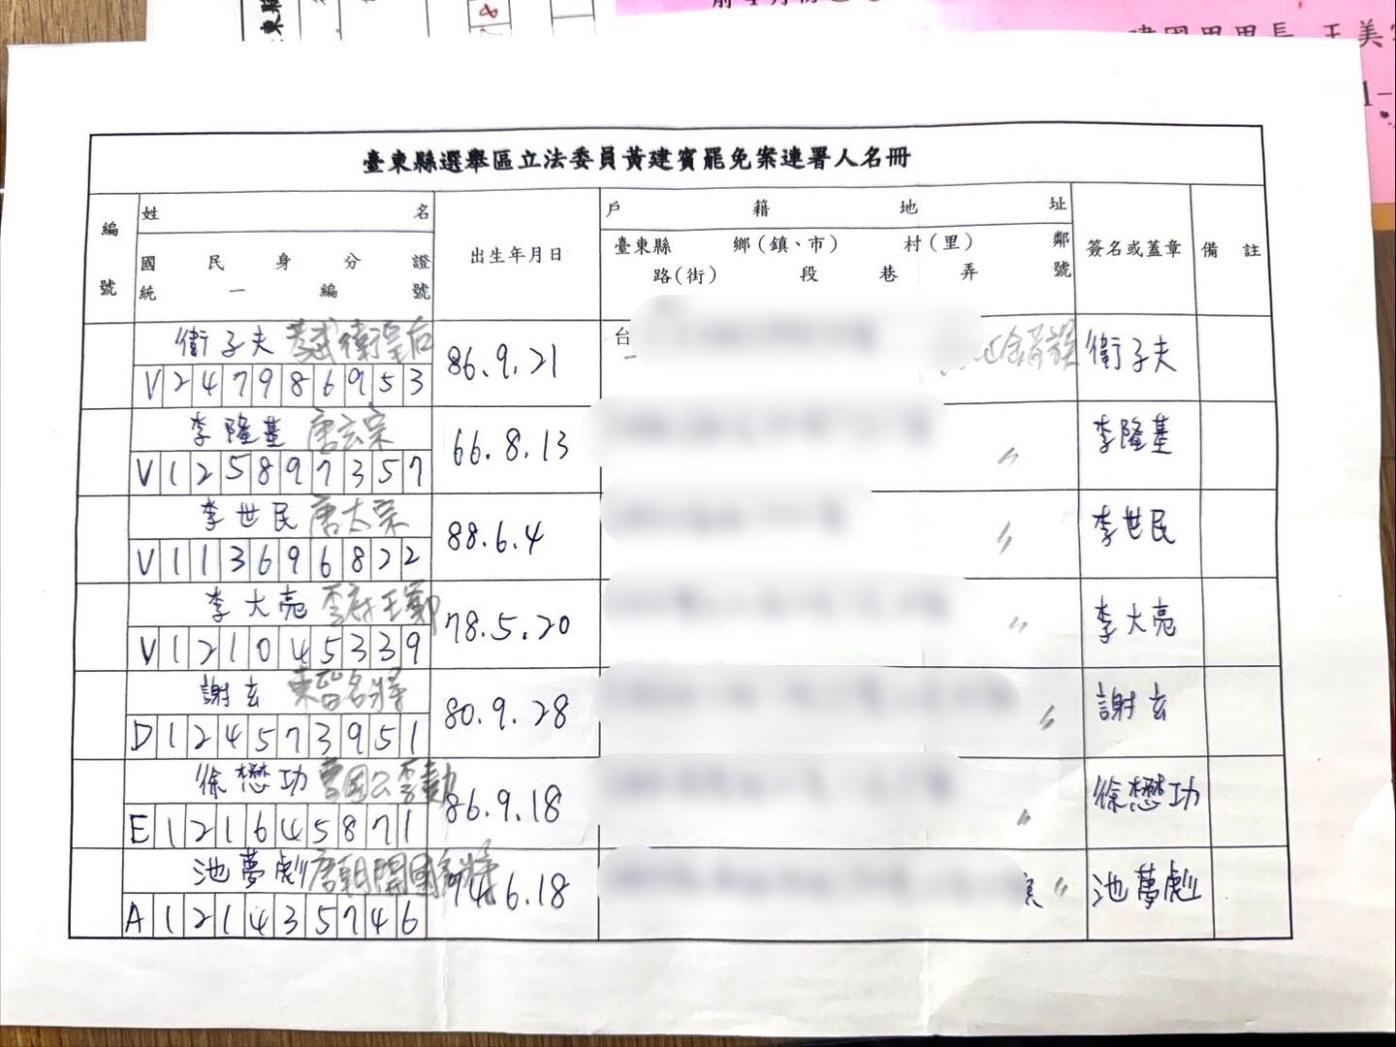 前4月份
建國里里長 王美
臺東縣選舉區立法委員黃建賓罷免案連署人名冊
編號 姓名 出生年月日 戶籍地址 簽名或蓋章 備註
國民身分證統一編號 臺東縣 鄉(鎮、市) 村(里) 鄰
路(街) 段 巷 弄 號
衛子夫 孝武衛皇后 86.9.21 台 衛子夫
V247986953
李隆基 唐玄宗 66.8.13 〃 李隆基
V125897357
李世民 唐太宗 88.6.4 〃 李世民
V113696822
李大亮 78.5.20 〃 李大亮
V121045339
謝玄 東晉名將 80.9.28 〃 謝玄
D124573951
徐懋功 英國公李勣 86.9.18 〃 徐懋功
E121645871
池夢彪 唐朝開國 94.6.18 〃 池夢彪
A121435746